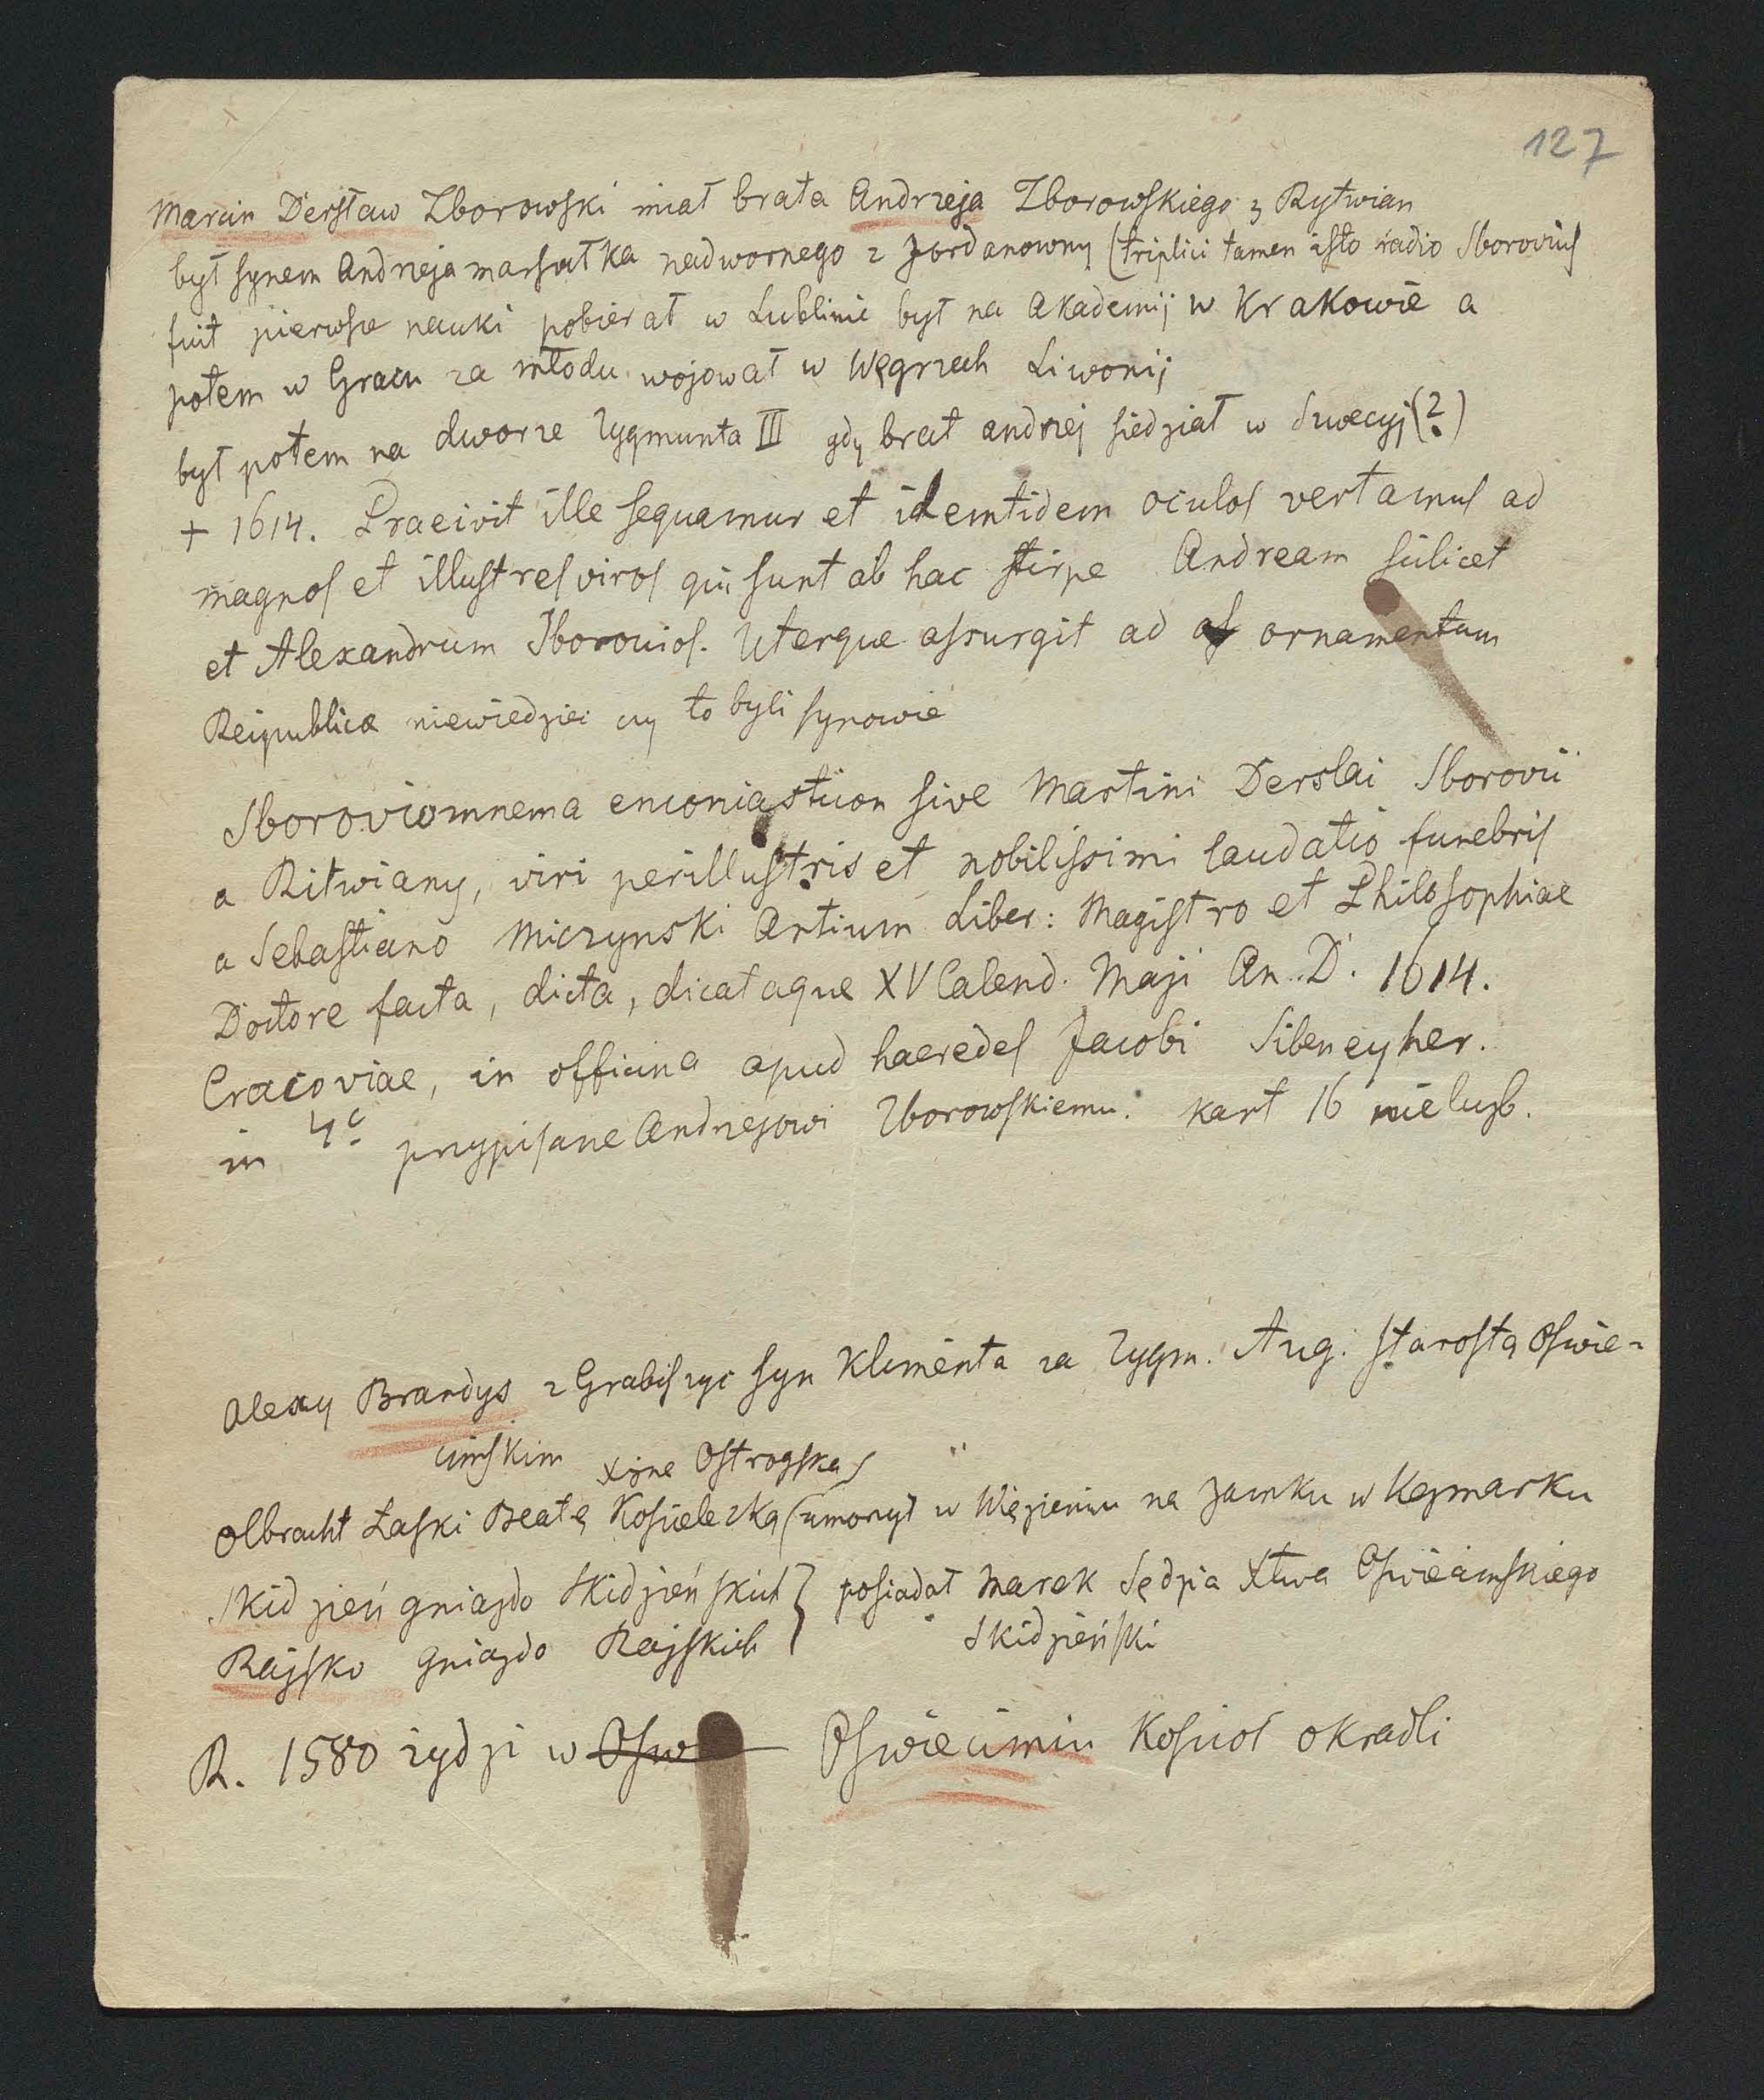 127
Marcin Dersław Zborowski miał brata Andrzeja Zborowskiego z Rytwian
był synem Andrzeja marszałka nadwornego z Jordanowny (triplici tamen isto radio Sborovius
fuit pierwsze nauki pobierał w Lublinie był na Akademij w Krakowie a
potem w Gracu za młodu wojował w Węgrzech Liwonij
był potem na dworze Zygmunta III gdy brat andrzej siedział w Szwecyj (?)
+ 1614. Praeivit ille sequamur et identidem oculos vertamus ad
magnos et illustres viros qui sunt ab hac stirpe Andream scilicet
et Alexandrum Sborovios. Uterque assurgit ad ornamentum
Reipublicæ niewiedzieć czy to byli synowie
Sboroviomnema enconiasticon sive Martini Derslai Sborovii
a Ritwiany, viri perillustris et nobilissimi laudatio funebris
a Sebastiano Miczynski Artium Liber: Magistro et Philosophiae
Doctore facta, dicta, dicataque XV Calend. Maji An. D. 1614.
Cracoviae, in officina apud haeredes Jacobi Sibeneyher.
in 4º przypisane Andrzejowi Zborowskiemu. kart 16 nieliczb.
Alexy Brandys z Grabiszyc syn Klimenta za Zygm. Aug. starostą Oświe-
cimskim
xżnę Ostrogską
Olbracht Łaski Beatę Kościelecką (umorzył w Więzieniu na zamku w Kezmarku
Skidzień gniazdo Skidzieńskich } posiadał Marek Sędzia Xtwa Oświecimskiego
Rajsko gniazdo Rajskich Skidzieński
R. 1580 żydzi w Osw Oświecimiu Kościoł okradli